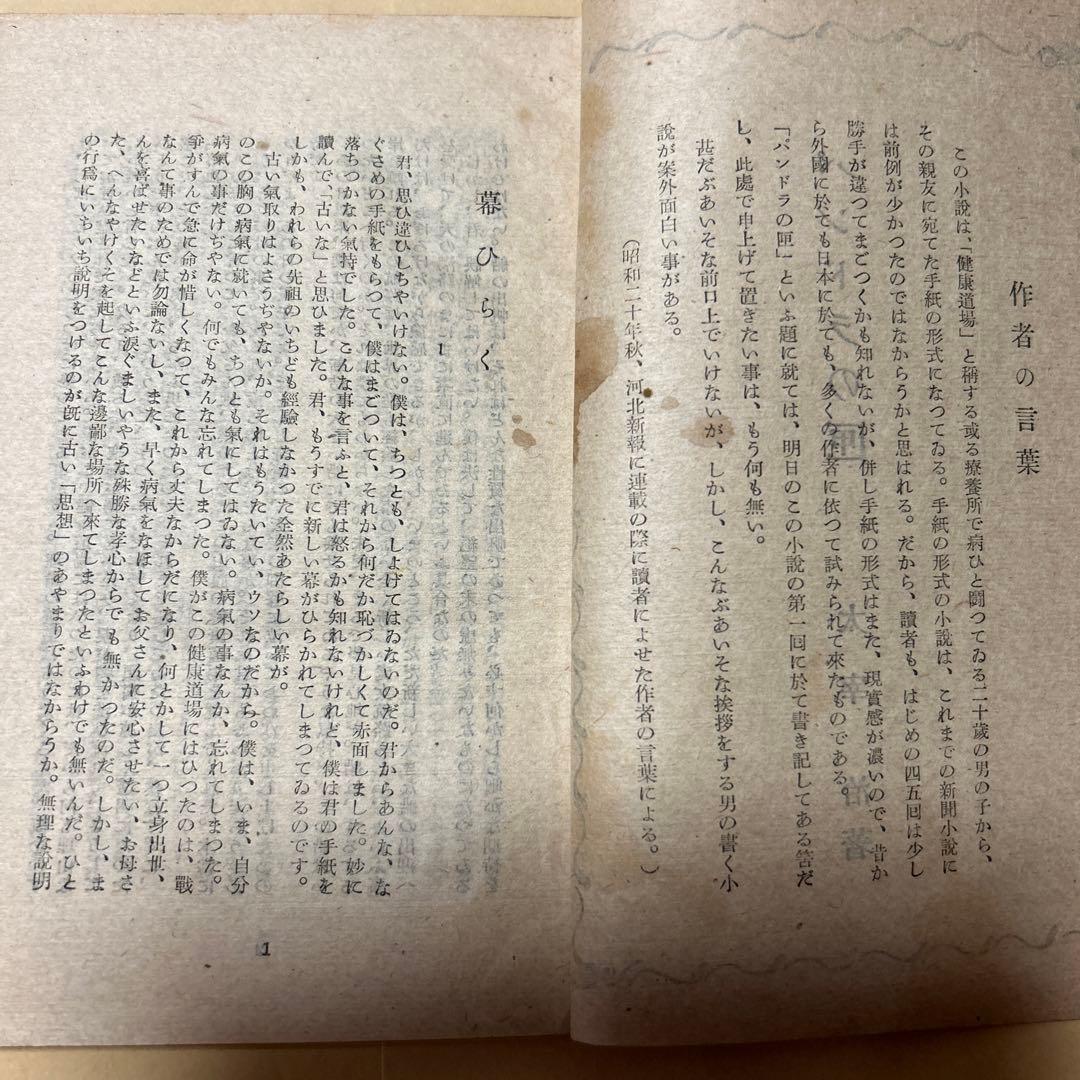 作者の言葉
この小説は、「健康道場」と稱する或る療養所で病ひと闘つてゐる二十歳の男の子から、
その親友に宛てた手紙の形式になつてゐる。手紙の形式の小説は、これまでの新聞小説に
は前例が少かつたのではなからうかと思はれる。だから、讀者も、はじめの四五回は少し
勝手が違つてまごつくかも知れないが、併し手紙の形式はまた、現実感が濃いので、昔か
ら外國に於ても日本に於ても、多くの作者に依つて試みられて來たものである。
「パンドラの匣」といふ題に就ては、明日のこの小説の第一回に於て書き記してある筈だ
し、此處で申上げて置きたい事は、もう何も無い。
甚だぶあいそな前口上でいけないが、しかし、こんなぶあいそな挨拶をする男の書く小
說が案外面白い事がある。
(昭和二十年秋、河北新報に連載の際に讀者によせた作者の言葉による。)
幕ひらく
1
君、思ひ違ひしちやいけない。僕は、ちつとも、しよげてはゐないのだ。君からあんな、な
ぐさめの手紙をもらつて、僕はまごついて、それから何だか恥づかしくて赤面しました。妙に
落ちつかない氣持でした。こんな事を言ふと、君は怒るかも知れないけれど、僕は君の手紙を
讀んで、「古いな」と思ひました。君、もうすでに新しい幕がひらかれてしまつてゐるのです。
しかも、われらの先祖のいちども經驗しなかつた全然あたらしい幕が。
古い氣取りはよさうぢやないか。それはもうたいてい、ウソなのだから。僕は、いま、自分
のこの胸の病氣に就いても、ちつとも氣にしてはゐない。病氣の事なんか、忘れてしまつた。
病氣の事だけぢやない。何でもみんな忘れてしまつた。僕がこの健康道場にはひつたのは、戰
爭がすんで急に命が惜しくなつて、これから丈夫なからだになり、何とかして一つ立身出世、
なんて事のためでは勿論ないし、また、早く病氣をなほしてお父さんに安心させたい、お母さ
んを喜ばせたいなどといふ涙ぐましいやうな殊勝な孝心からでも無かつたのだ。しかし、ま
た、へんなやけくそを起してこんな邊鄙な場所へ來てしまつたといふわけでも無いんだ。ひと
の行爲にいちいち説明をつけるのが既に古い「思想」のあやまりではなからうか。無理な説明
1